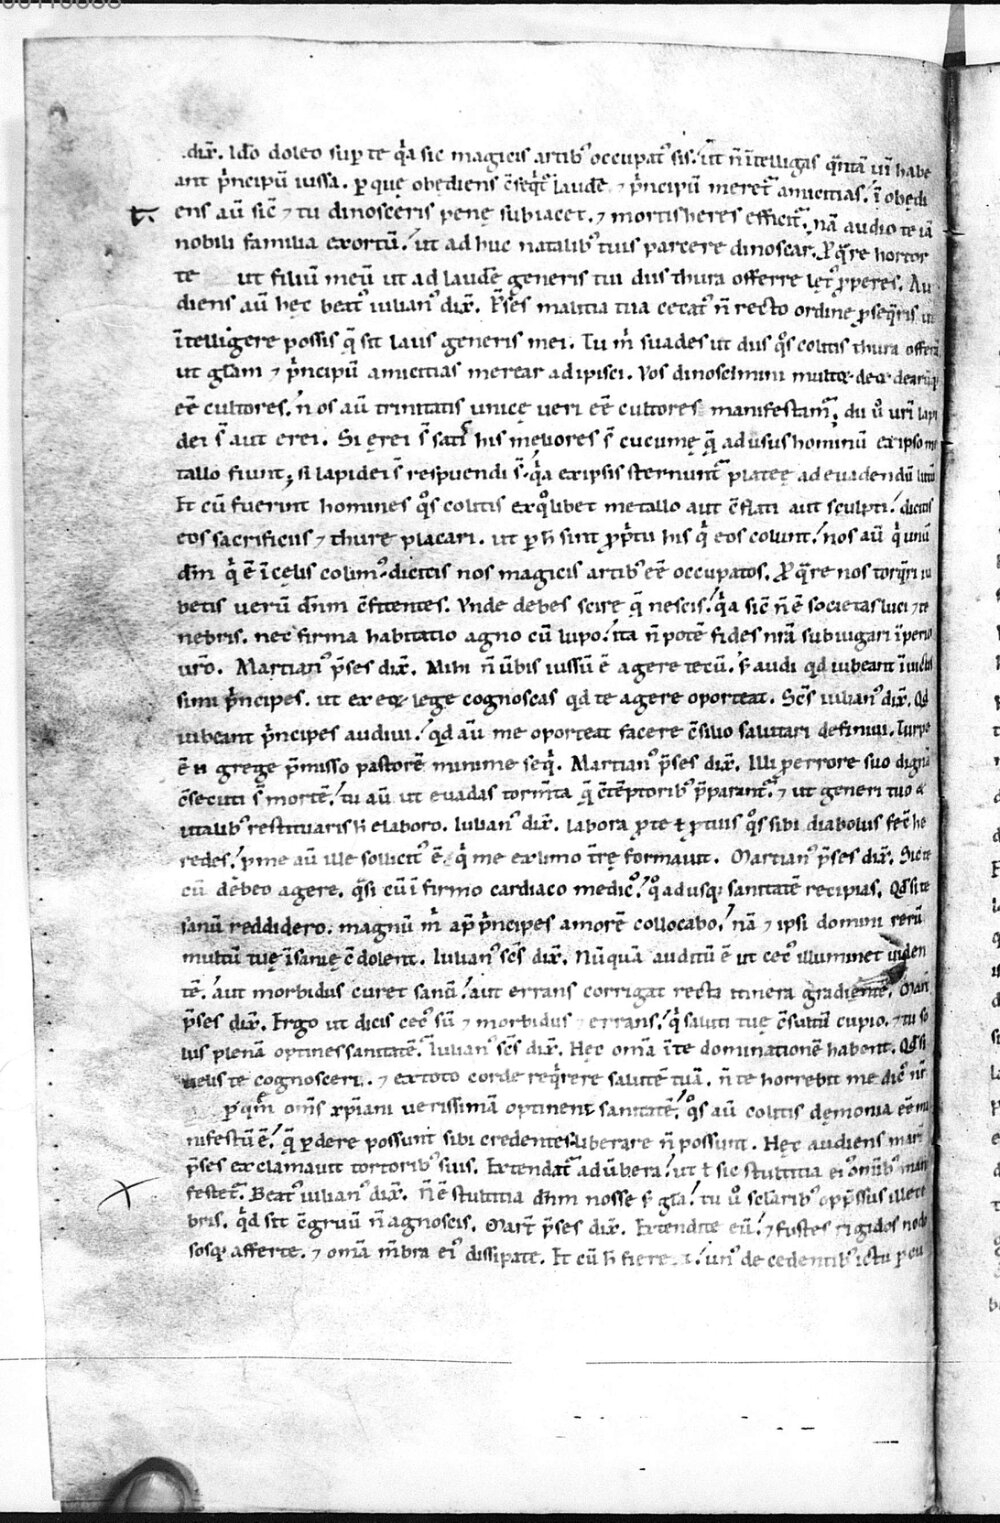 .dix̄. Ido doleo sup te q̇a sic magicis artib⁹ occupat⁹ sis. ut ñ ītelligas q̄ntā uī habe
ant p̄ncipū iussa. p quę obędiens c̄seq̄t᷑ laudē ⁊ p̄ncipū meret᷑ amicitias. ī obędi
ens aū sic̄ ⁊ tu dinosceris penę subiacet. ⁊ mortis heres efficit᷑. nā audio te iā
nobili familia exortū. ut ad huc natalib⁹ tuis parcere dinoscar. P q̄re hortor
te ut filiū meū ut ad laudē generis tui diis thura offerre let⁹ pperes. Au
diens aū hęc beat⁹ iulian⁹ dix̄. P̄ses malitia tua cecat⁹ ñ recto ordine pseq̄ris ut
ītelligere possis q̄ sit laus generis mei. Tu m̄ suades ut diis q̊s colitis thura offerā
ut gl̄am ⁊ p̄ncipū amicitias merear adipisci. Vos dinoscimini multoꝝ deoꝝ dearūq;
eē cultores. ñ os aū trinitatis unicę ueri eē cultores manifestam᷑. dii u̇ ur̄i lapi
dei s̄ aut erei. Si ęrei s̄ sati᷑ his meliores s̄ cucumę q̄ ad usus hominū ex ipso me
tallo fiunt; si lapidei s̄ respuendi s̄. q̇a ex ipsis sternunt᷑ plateę ad euadendū lutū
Et cū fuerint homines q̊s colitis ex q̊libet metallo aut c̄flati aut sculpti. dicitis
eos sacrificiis ⁊ thure placari. ut p h̄ sint ppitii his q̇ eos colunt. nos aū q̇ unū
dm̄ q̇ ē ī cęlis colim⁹. dicitis nos magicis artib⁹ eē occupatos. P q̄re nos torq̄ri iu
betis uerū dn̄m c̄fitentes. Vnde debes scire q̄ nescis. q̇a sic̄ ñ ē societas luci ⁊ te
nebris. nec firma habitatio agno cū lupo. ita ñ potē fides nr̄a subiugari īperio
ur̄o. Martian⁹ p̄ses dix̄. Mihi ñ ūbis iussū ē agere tecū. s; audi qd iubeant īuictis
simi p̄ncipes. ut ex eoꝝ lege cognoscas qd te agere oporteat. Sc̄s iulian⁹ dix̄. Qd
iubeant p̄ncipes audiui. qd aū me oporteat facere c̄silio salutari definiui. Turpe
ē ñ grege p̄misso pastorē minime seq̇. Martian⁹ p̄ses dix̄. Illi p errore suo dignā
c̄secuti s̄ mortē. tu aū ut euadas torm̄ta q̄ c̄tēptorib⁹ p̄parant᷑. ⁊ ut generi tuo &
utalib⁹ restituaris h̄ elaboro. Iulian⁹ dix̄. labora p te ł p tuis q̊s sibi diabolus fec̄ he
redes. p me aū ille sollicit⁹ ē. q̇ me ex limo t̄rę formauit. Martian⁹ p̄ses dix̄. Sic te
cū dēbeo agere. q̄si cū ī firmo cardiaco medic⁹. q̊ adusq; sanitatē recipias. Qd si te
sanū reddidero. magnū m̄ ap̄ p̄ncipes amorē collocabo. nā ⁊ ipsi domini rerū
multū tuę īsanię c̄dolent. Iulian⁹ sc̄s dix̄. Nūquā auditū ē ut cec⁹ illuminet uiden
tē. aut morbidus curet sanū. aut errans corrigat recta itinera gradientē. Mart̄
p̄ses dix̄. Ergo ut dicis cec⁹ sū ⁊ morbidus ⁊ errans. q̇ saluti tuę c̄sultū cupio. ⁊ tu so
lus plenā optines sanitatē. Iulian⁹ sc̄s dix̄. Hęc om̄a ī te dominationē habent. Qd si
uelis te cognoscere. ⁊ ex toto corde req̄rere salutē tuā. ñ te horrebit medic⁹ nr̄
p quē om̄s xp̄iani uerissimā optinent sanitatē. q̊s aū colitis dęmonia eē ma
nifestū ē. q̄ pdere possunt sibi credentes liberare ñ possunt. Hęc audiens mart̄
p̄ses exclamauit tortorib⁹ suis. Extendat᷑ ad ūbera. ut ł sic stultitia ei⁹ omib⁹ mani
festet᷑. Beat⁹ iulian⁹ dix̄. ñ ē stultitia dn̄m nosse s; gl̄a. tu u̇ sclarib⁹ opp̄ssus illece
bris. q̇d sit c̄gruū ñ agnoscis. Mart̄ p̄ses dix̄. Extendite eū. ⁊ fustes rigidos nodo
sosq; afferte. ⁊ om̄a m̄bra ei⁹ dissipate. Et cū h̄ fieret. un⁹ de cedentib⁹ ictu peu